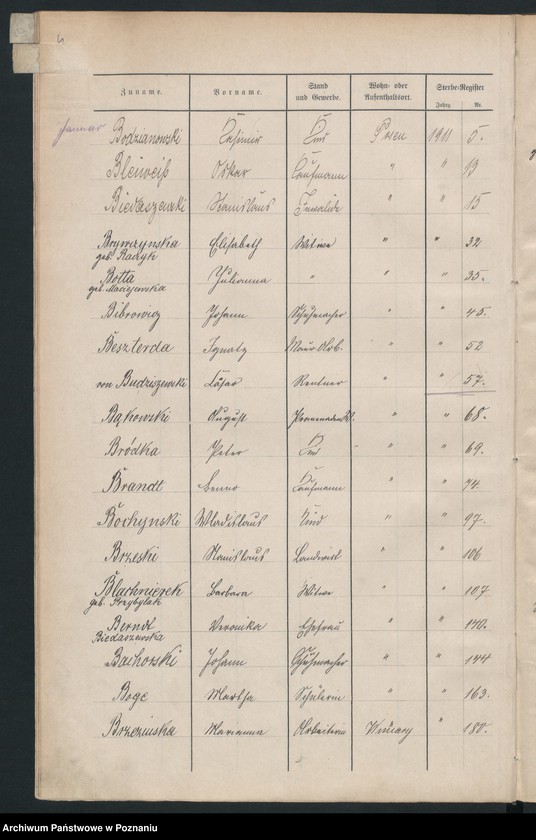 Zuname. Vorname. Stand und Gewerbe. Wohn- oder Aufenthaltsort. Sterbe-Register
Jahrg. Nr.
Januar
Bodzianowski Casimir Kind Posen 1911 5.
Bleiweiß Oskar Kaufmann " " 13
Biedaszewski Stanislaus Invalide " " 15
Elisabeth Witwe " " 32
geb.
Botta Julianna " " " 35.
geb. Maciejewska
Bibrowicz Johann Schuhmacher " " 45.
Beszterda Ignatz Maur. Arb. " " 52
von Budziszewski Cäsar Rentner " " 57.
Bąkowski August " " 68.
Bródka Peter Kind " " 69.
Brandt Benno Kaufmann " " 74.
Bochynski Wladislaus Kind " " 97.
Brzeski Stanislaus Landwirt " " 106
Blachnierek Barbara Witwe " " 107
geb. Przybylak
Berndt Veronika Ehefrau " " 140.
Biedaszewska
Bachorski Johann Schuhmacher " " 144
Boge Martha Schülerin " " 163.
Brzezinska Marianna Arbeiterin Winiary " 180.
Archiwum Państwowe w Poznaniu